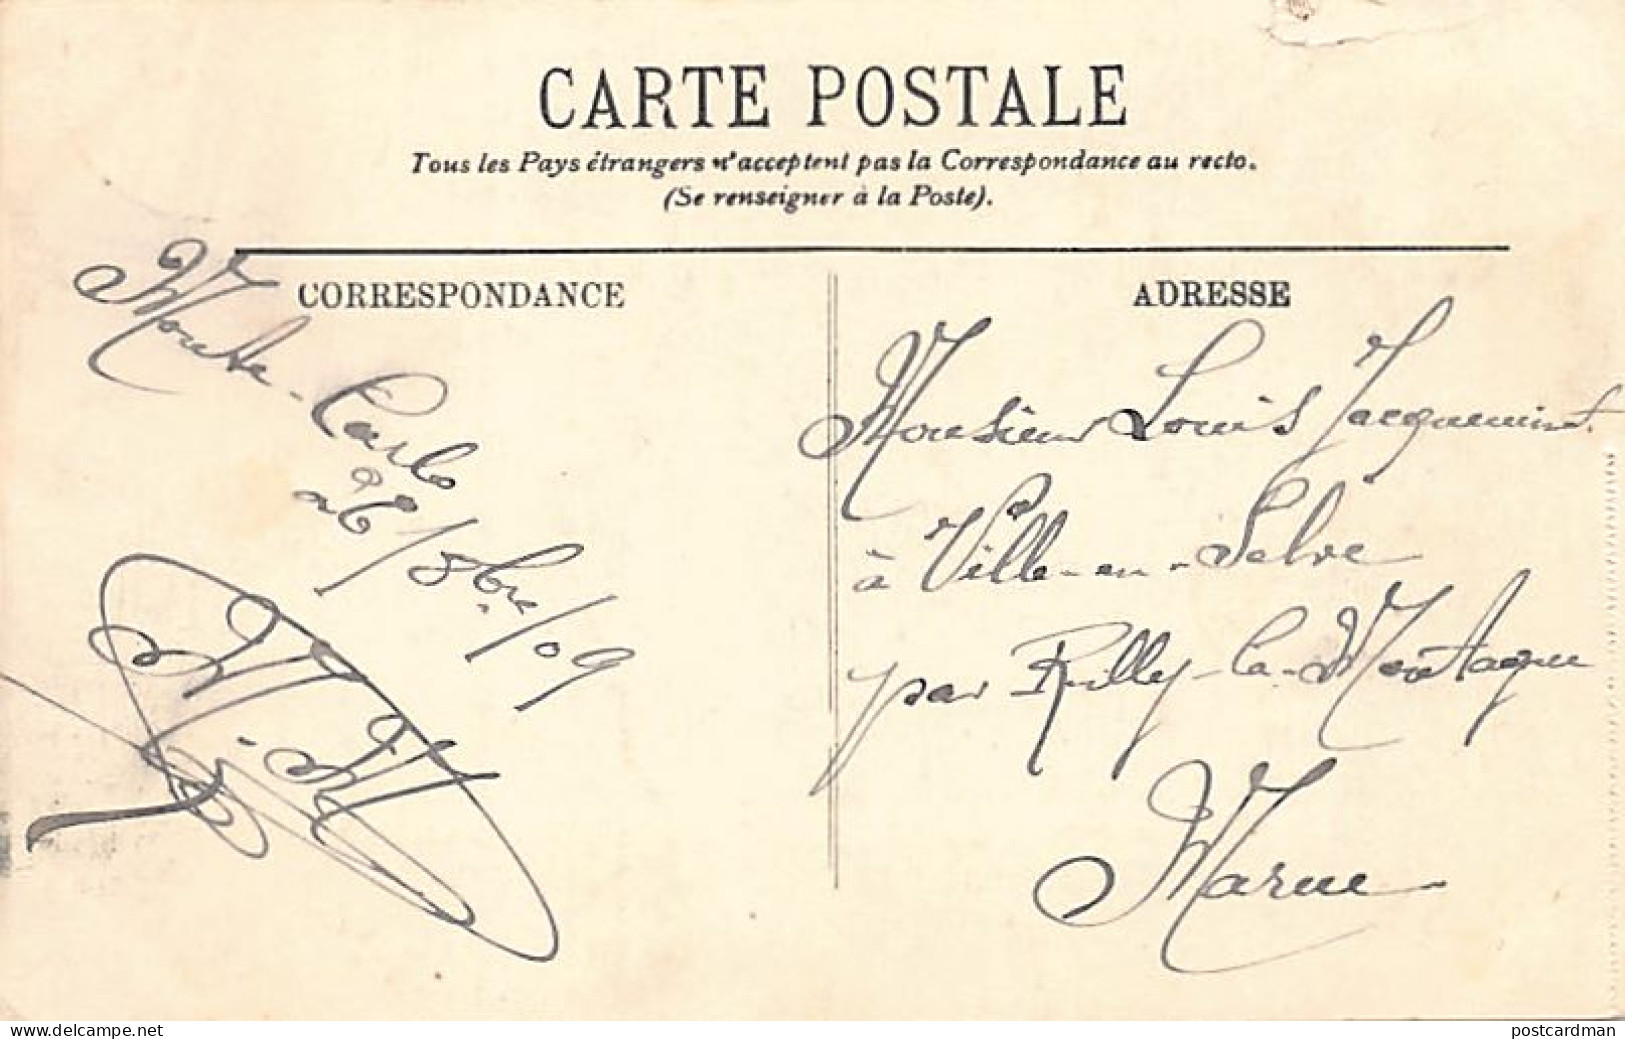 CARTE POSTALE
Tous les Pays étrangers n'acceptent pas la Correspondance au recto.
(Se renseigner à la Poste).
CORRESPONDANCE
Monte-Carlo
26/8bre/09
ADRESSE
Monsieur Louis Jacqueminet.
à Ville-en-Selve
par Rilly-la-Montagne
Marne
www.delcampe.net
postcardman